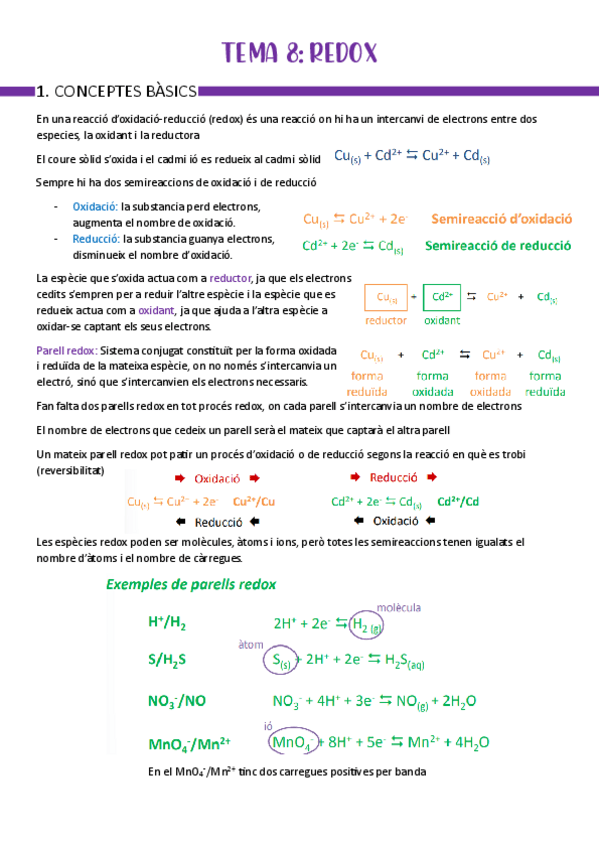 TEMA 8: REDOX
1. CONCEPTES BÀSICS
En una reacció d'oxidació-reducció (redox) és una reacció on hi ha un intercanvi de electrons entre dos
especies, la oxidant i la reductora
El coure sòlid s'oxida i el cadmi ió es redueix al cadmi sòlid Cu(s) + Cd²⁺ ⇆ Cu²⁺ + Cd(s)
Sempre hi ha dos semireaccions de oxidació i de reducció
- Oxidació: la substancia perd electrons,
augmenta el nombre de oxidació.
- Reducció: la substancia guanya electrons,
disminueix el nombre d'oxidació.
Cu(s) ⇆ Cu²⁺ + 2e⁻ Semireacció d'oxidació
Cd²⁺ + 2e⁻ ⇆ Cd(s) Semireacció de reducció
La espècie que s'oxida actua com a reductor, ja que els electrons
cedits s'empren per a reduir l'altre espècie i la espècie que es
redueix actua com a oxidant, ja que ajuda a l'altra espècie a
oxidar-se captant els seus electrons.
Cu(s) + Cd²⁺ ⇆ Cu²⁺ + Cd(s)
reductor oxidant
Parell redox: Sistema conjugat constituït per la forma oxidada
i reduïda de la mateixa espècie, on no només s'intercanvia un
electró, sinó que s'intercanvien els electrons necessaris.
Cu(s) + Cd²⁺ ⇆ Cu²⁺ + Cd(s)
forma forma forma forma
reduïda oxidada oxidada reduïda
Fan falta dos parells redox en tot procés redox, on cada parell s'intercanvia un nombre de electrons
El nombre de electrons que cedeix un parell serà el mateix que captarà el altra parell
Un mateix parell redox pot patir un procés d'oxidació o de reducció segons la reacció en què es trobi
(reversibilitat)
Oxidació
Cu(s) ⇆ Cu²⁺ + 2e⁻ Cu²⁺/Cu
Reducció
Reducció
Cd²⁺ + 2e⁻ ⇆ Cd(s) Cd²⁺/Cd
Oxidació
Les espècies redox poden ser molècules, àtoms i ions, però totes les semireaccions tenen igualats el
nombre d'àtoms i el nombre de càrregues.
Exemples de parells redox
molècula
H⁺/H₂ 2H⁺ + 2e⁻ ⇆ H₂ (g)
àtom
S/H₂S S(s) + 2H⁺ + 2e⁻ ⇆ H₂S(aq)
NO₃⁻/NO NO₃⁻ + 4H⁺ + 3e⁻ ⇆ NO(g) + 2H₂O
ió
MnO₄⁻/Mn²⁺ MnO₄⁻ + 8H⁺ + 5e⁻ ⇆ Mn²⁺ + 4H₂O
En el MnO₄⁻/Mn²⁺ tinc dos carregues positives per banda